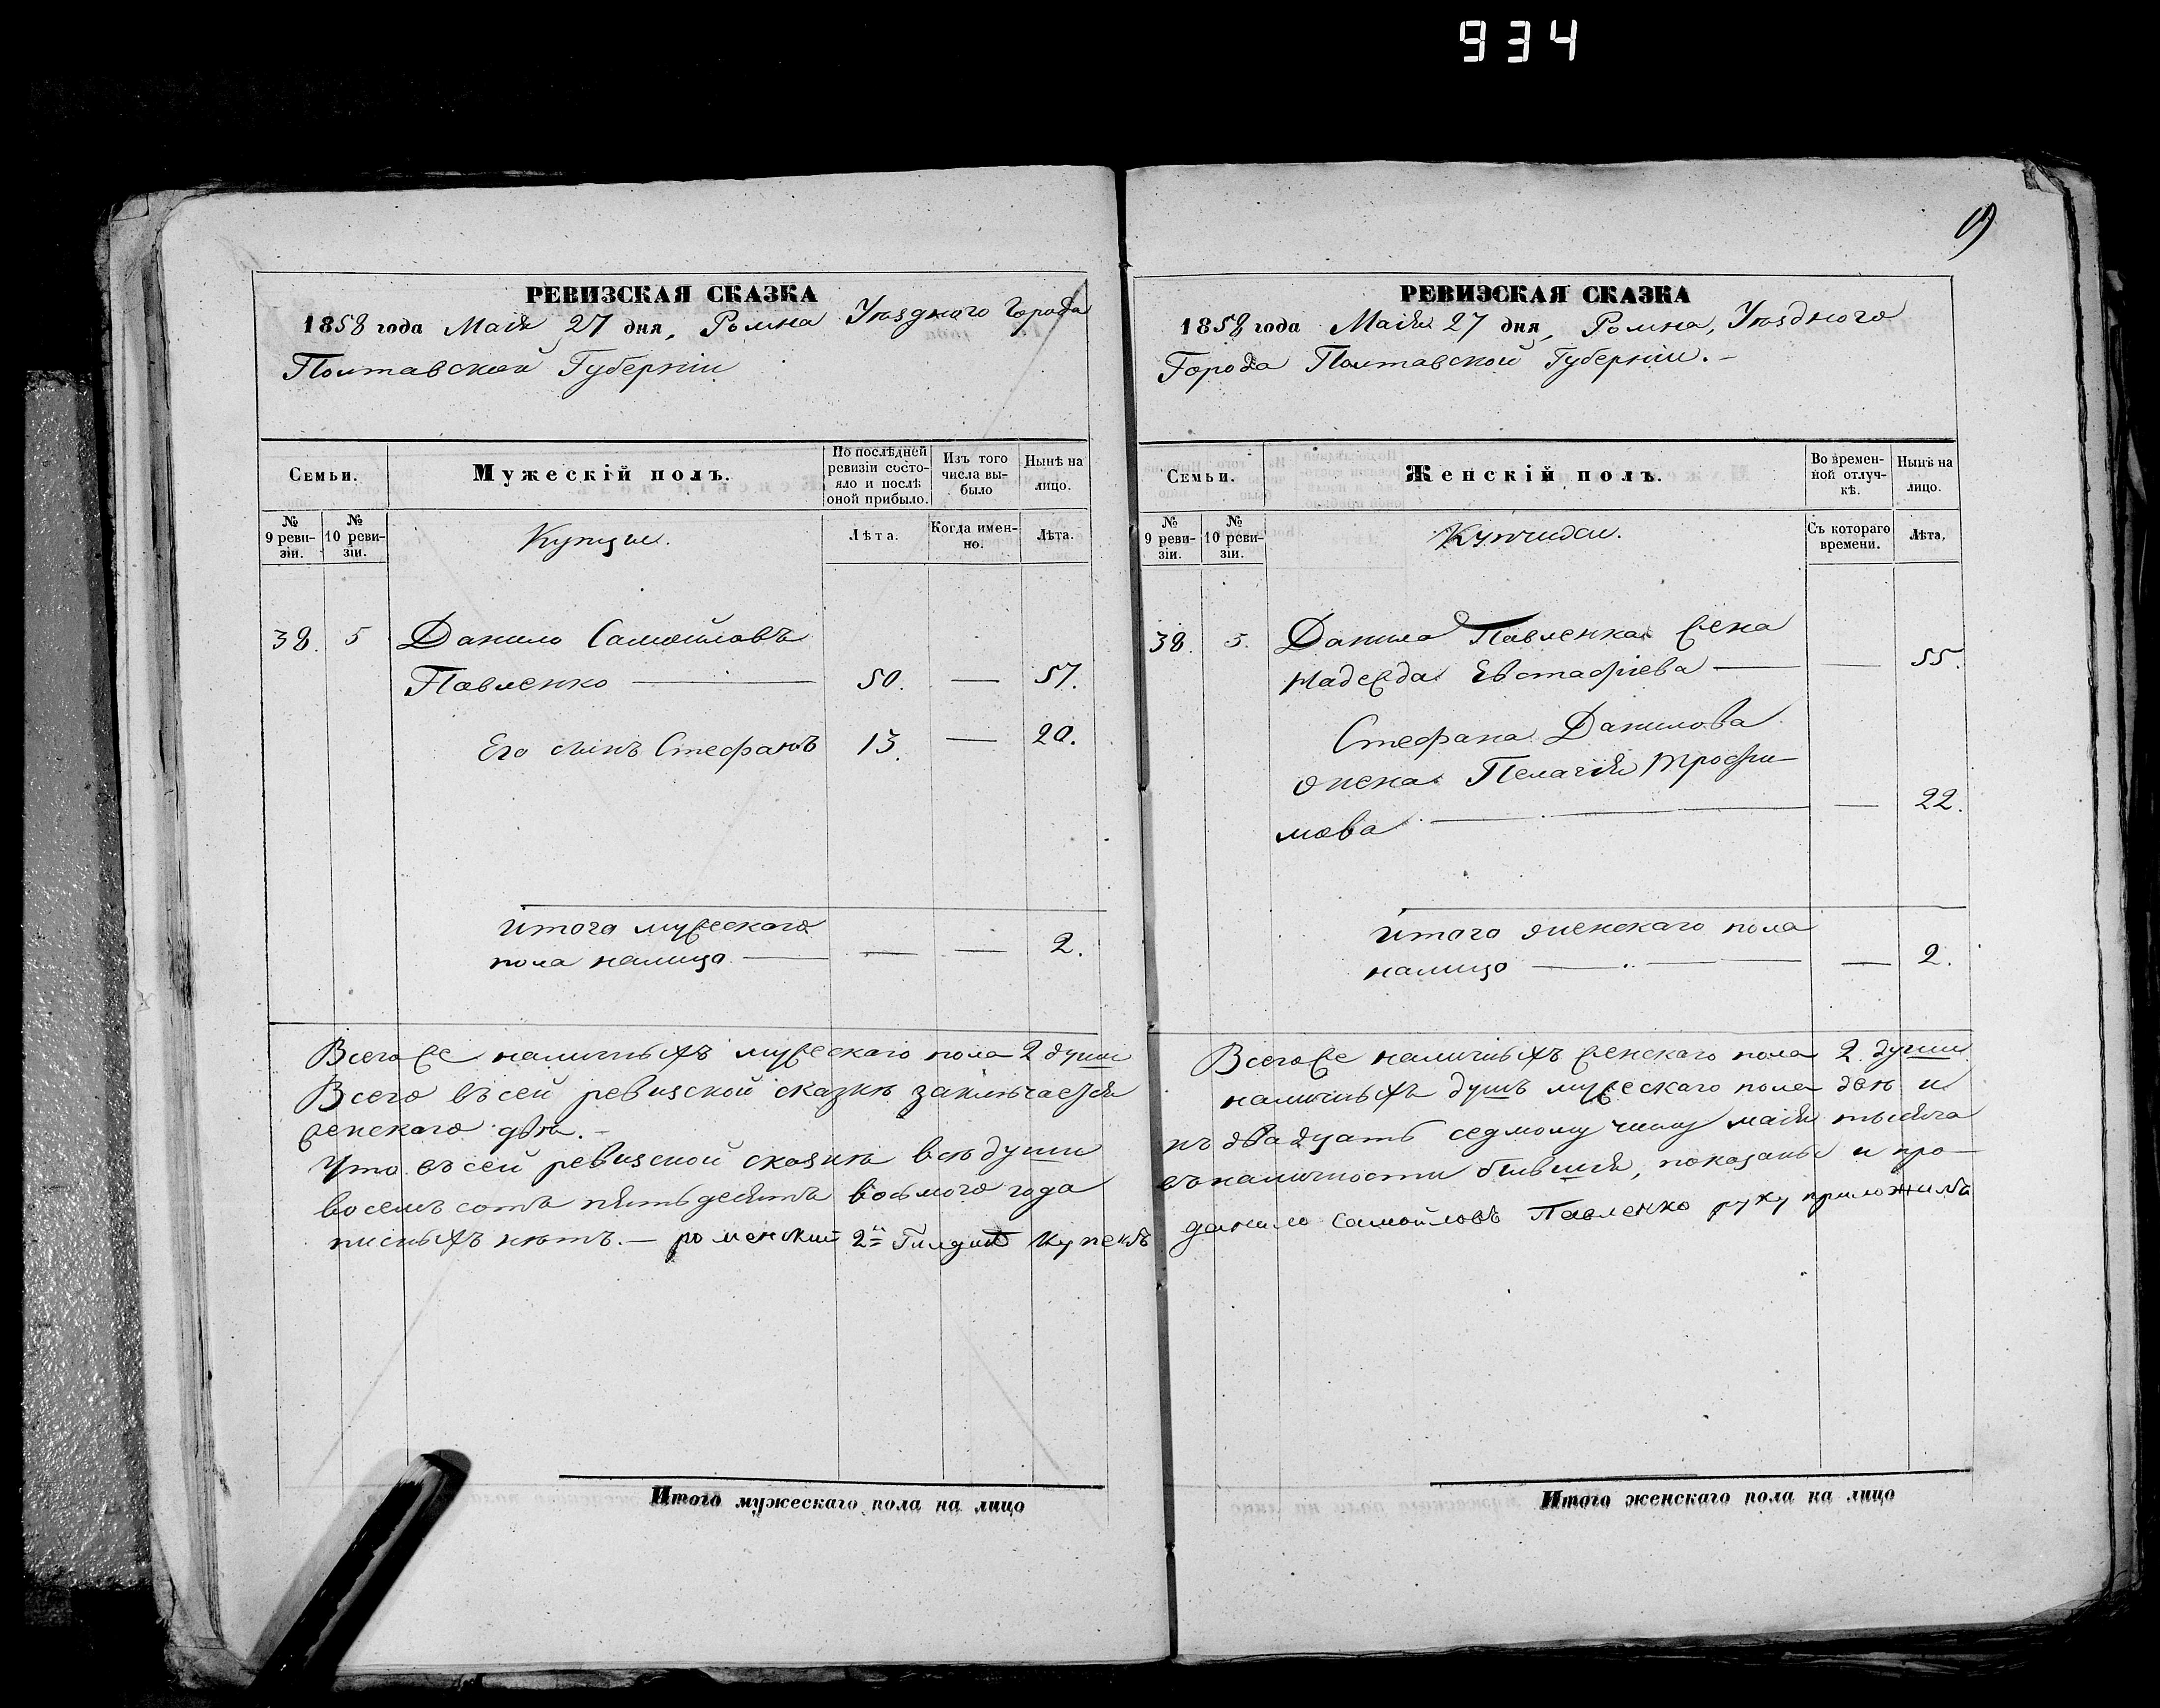 934
9
РЕВИЗСКАЯ СКАЗКА
1858 года Маія 27 дня, Ромна Уѣзднаго Города
Полтавской Губерніи
Семьи.
Мужескій полъ.
По послѣдней ревизіи состояло и послѣ оной прибыло.
Изъ того числа выбыло
Нынѣ на лицо.
№ 9 ревизіи.
№ 10 ревизіи.
Купцы.
Лѣта.
Когда именно.
Лѣта.
38. 5 Данило Самойловъ
Павленко — 50. — 57.
Его сынъ Стефанъ 13. — 20.
Итого мужескаго
пола налицо — — — 2.
Всегоже наличныхъ мужескаго пола 2 души
Всего въ сей ревизской сказкѣ заключается
женскаго двѣ. –
Что въ сей ревизской сказкѣ всѣ души
восемъ сотъ пятьдесятъ восьмого года
писныхъ нѣтъ. — роменский 2й Гилдии Купецъ
Итого мужескаго пола на лицо
РЕВИЗСКАЯ СКАЗКА
1858 года Маія 27 дня, Ромна, Уѣзднаго
Города Полтавской Губерніи. –
Семьи.
Женскій полъ.
Во временной отлучкѣ.
Нынѣ на лицо.
№ 9 ревизіи.
№ 10 ревизіи.
Купчихи.
Съ котораго времени.
Лѣта.
38. 5. Данила Павленка жена
Надежда Евстафіева — — 55.
Стефана Данилова
жена Пелагія Трофи-
мова — — 22.
Итого женскаго пола
налицо — — 2.
Всегоже наличныхъ женскаго пола 2 души
наличныхъ душъ мужескаго пола двѣ и
къ двадцать седмому числу маія тысяча
въ наличности бывшія, показаны и про-
данило Самойловъ Павленко руку приложилъ
Итого женскаго пола на лицо